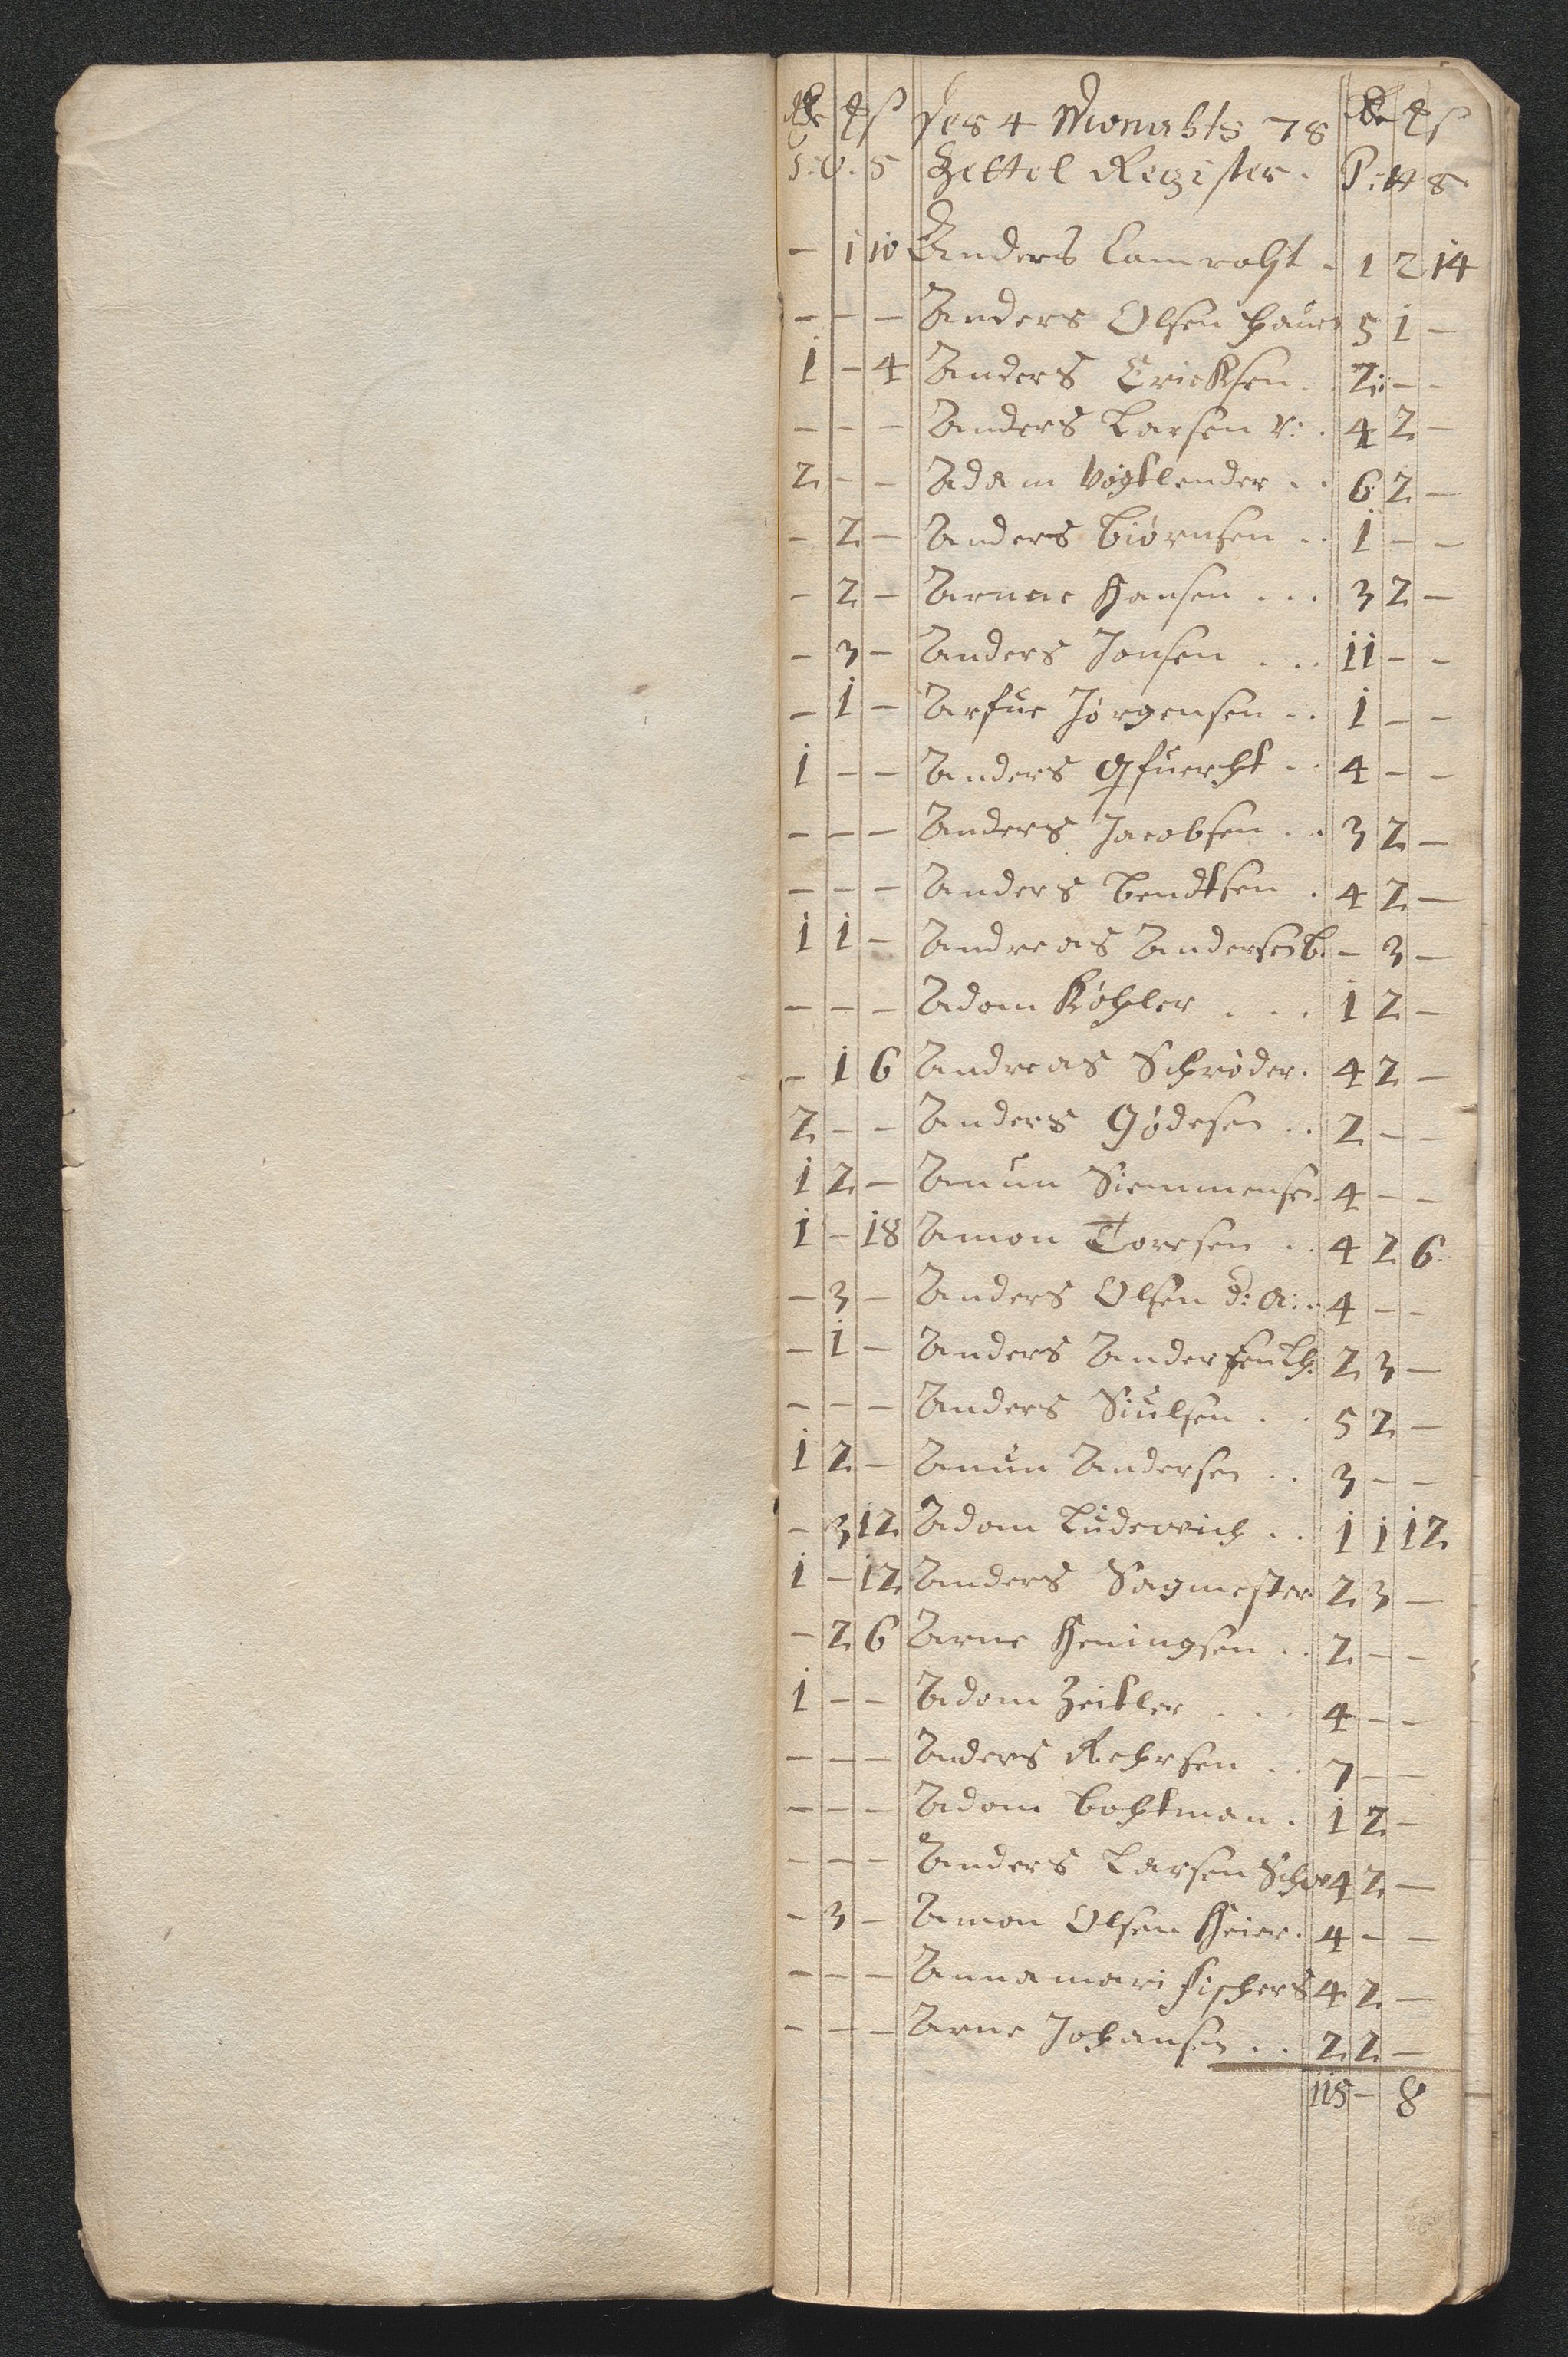 des 4 Monahts 78
Zettel Register.
- 1 10 Anders Camroht . 1 2 14
- - - Anders Olsen haur 5 1 -
1 - 4 Anders Ericksen . 2 - -
- - - Anders Larsen v: . 4 2 -
2 - - Adam Vogtlender . . 6 2 -
- 2 - Anders Biørnsen . . 1 - -
- 2 - Arnne Hansen . . . 3 2 -
- 3 - Anders Jonsen . . . 11 - -
- 1 - Arfue Jørgensen . . 1 - -
1 - - Anders . . 4 - -
- - - Anders Jacobsen . . 3 2 -
- - - Anders Bendtsen . 4 2 -
1 1 - Andreas Andersen b. - 3 -
- - - Adam Köhler . . . 1 2 -
- 1 6 Andreas Schrøder . 4 2 -
2 - - Anders Gødesen . . 2 - -
1 2 - Anun Siemmensen . 4 - -
1 - 18 Amon Toresen . . 4 2 6
- 3 - Anders Olsen d: A: . 4 - -
- 1 - Anders Andersen Lh: 2 3 -
- - - Anders Siulsen . . 5 2 -
1 2 - Anun Andersen . . 3 - -
- 3 12 Adam Ludewich . . 1 1 12
1 - 12 Anders Sagmester 2 3 -
- 2 6 Arne Heningsen . . 2 - -
1 - - Adam Zeitler . . . 4 - -
- - - Anders Rehrsen . . 7 - -
- - - Adam Bohtman . 1 2 -
- - - Anders Larsen Schw 4 2 -
- 3 - Amon Olsen Heier . 4 - -
- - - Annamari Fischers 4 2 -
- - - Arne Johansen . . 2 2 -
115 - 8